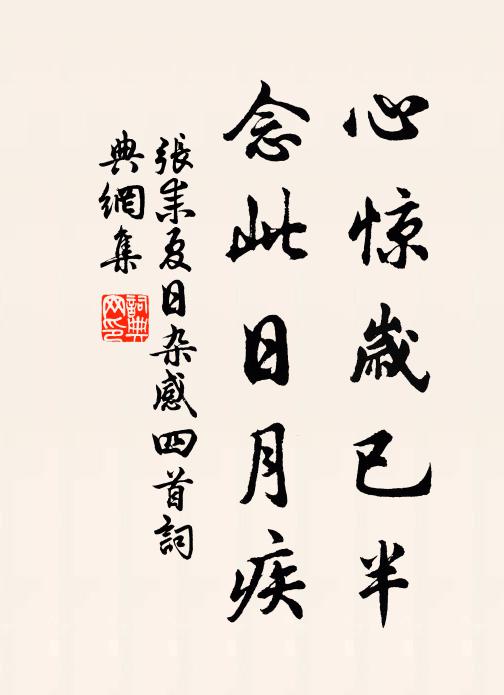 心惊歲已半
念此日月疾
張耒夏日杂感四首詞
典網集
詞典网印